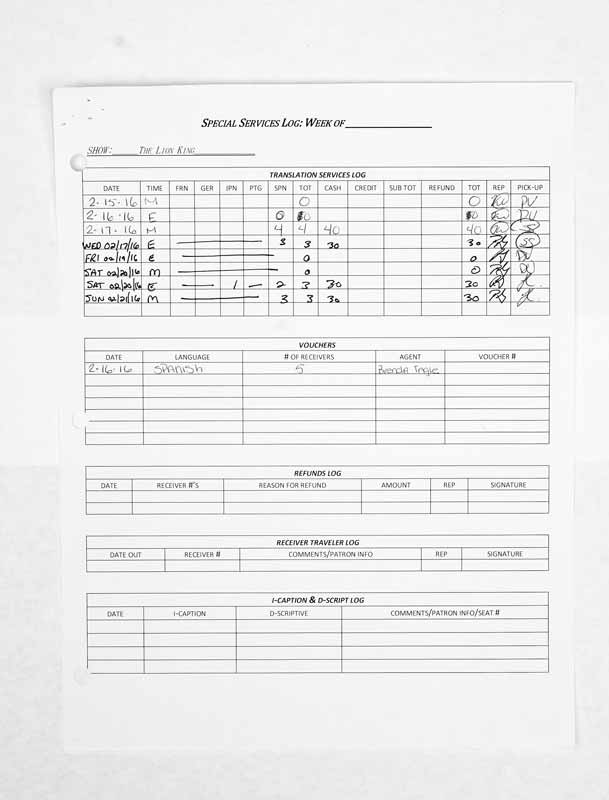 SPECIAL SERVICES LOG: WEEK OF
SHOW: THE LION KING
TRANSLATION SERVICES LOG
DATE TIME FRN GER JPN PTG SPN TOT CASH CREDIT SUB TOT REFUND TOT REP PICK-UP
2-15-16 M 0 0 DU
2-16-16 E 0 0 0 DU
2-17-16 M 4 4 40 40 SS
WED 02/17/16 E 3 3 30 30 SS
FRI 02/19/16 E 0 0 DU
SAT 02/20/16 M 0 0 DU
SAT 02/20/16 E 1 2 3 30 30
SUN 02/21/16 M 3 3 30 30
VOUCHERS
DATE LANGUAGE # OF RECEIVERS AGENT VOUCHER #
2-16-16 SPANISH 5 Brenda
REFUNDS LOG
DATE RECEIVER #'S REASON FOR REFUND AMOUNT REP SIGNATURE
RECEIVER TRAVELER LOG
DATE OUT RECEIVER # COMMENTS/PATRON INFO REP SIGNATURE
I-CAPTION & D-SCRIPT LOG
DATE I-CAPTION D-SCRIPTIVE COMMENTS/PATRON INFO/SEAT #